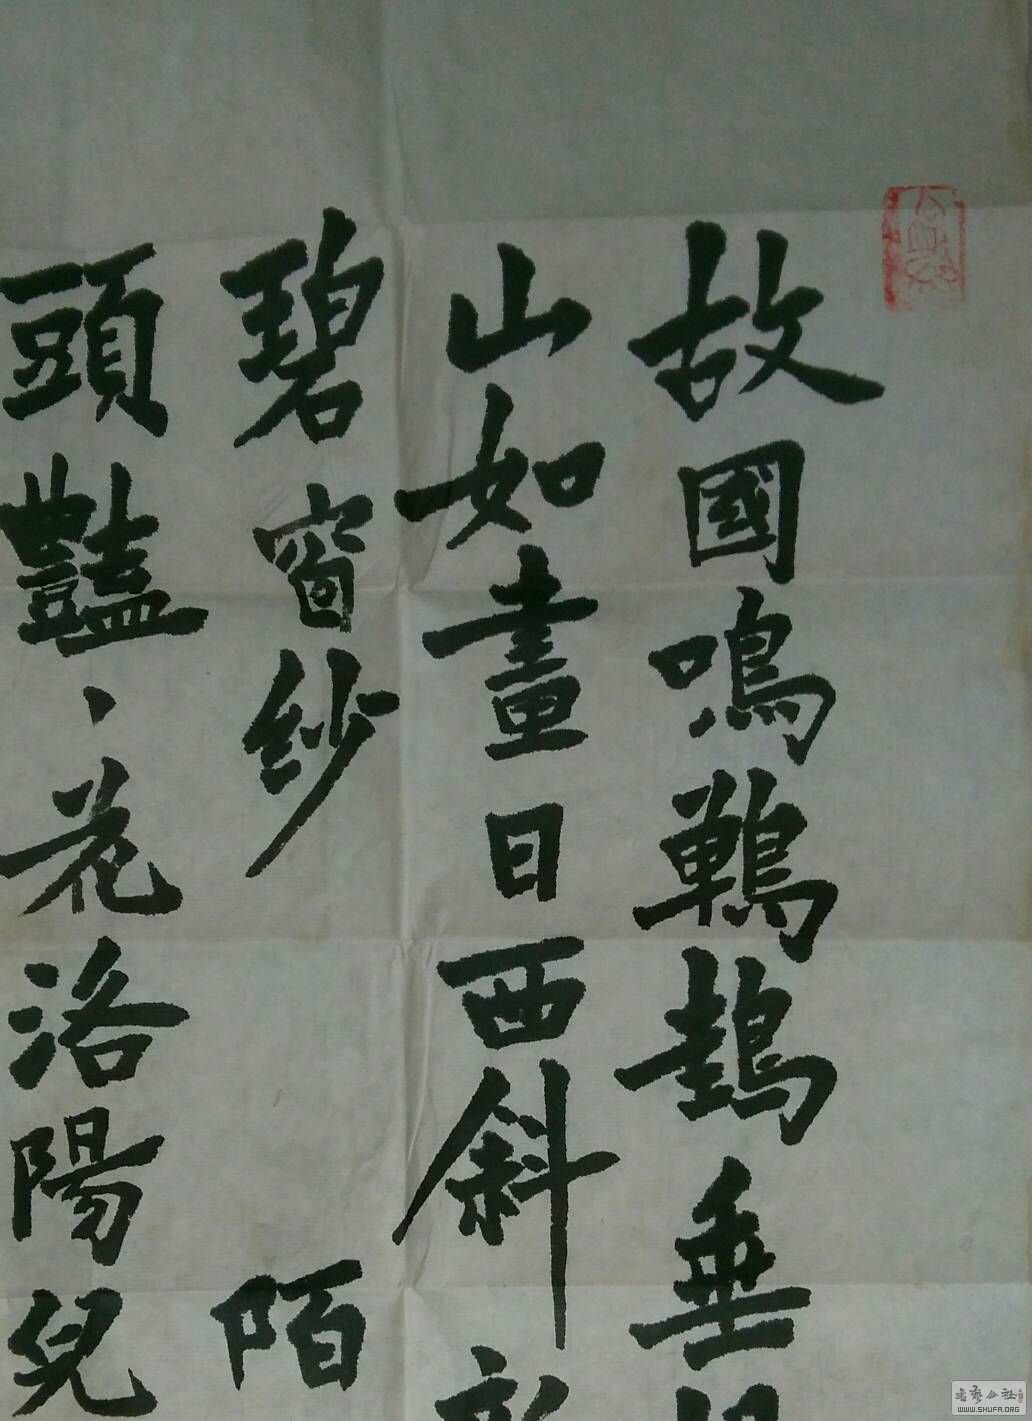 故國鳴鷤垂
山如畫日西斜
碧窗紗 陌
頭豔、花洛陽兒
書藝公社
WWW.SHUFA.ORG